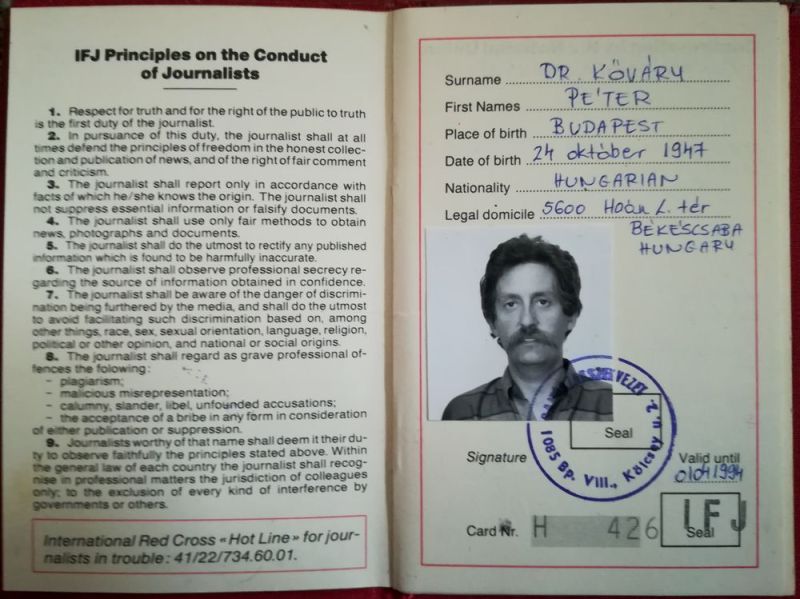 IFJ Principles on the Conduct
of Journalists
1. Respect for truth and for the right of the public to truth
is the first duty of the journalist.
2. In pursuance of this duty, the journalist shall at all
times defend the principles of freedom in the honest collec-
tion and publication of news, and of the right of fair comment
and criticism.
3. The journalist shall report only in accordance with
facts of which he/she knows the origin. The journalist shall
not suppress essential information or falsify documents.
4. The journalist shall use only fair methods to obtain
news, photographs and documents.
5. The journalist shall do the utmost to rectify any published
information which is found to be harmfully inaccurate.
6. The journalist shall observe professional secrecy re-
garding the source of information obtained in confidence.
7. The journalist shall be aware of the danger of discrimi-
nation being furthered by the media, and shall do the utmost
to avoid facilitating such discrimination based on, among
other things, race, sex, sexual orientation, language, religion,
political or other opinion, and national or social origins.
8. The journalist shall regard as grave professional of-
fences the folowing:
- plagiarism;
- malicious misrepresentation;
- calumny, slander, libel, unfounded accusations;
- the acceptance of a bribe in any form in consideration
of either publication or suppression.
9. Journalists worthy of that name shall deem it their du-
ty to observe faithfully the principles stated above. Within
the general law of each country the journalist shall recog-
nise in professional matters the jurisdiction of colleagues
only; to the exclusion of every kind of interference by
governments or others.
International Red Cross «Hot Line» for jour-
nalists in trouble: 41/22/734.60.01.
Surname DR. KŐVÁRY
First Names PÉTER
Place of birth BUDAPEST
Date of birth 24 október 1947
Nationality HUNGARIAN
Legal domicile 5600 L. tér
BÉKÉSCSABA
HUNGARY
1085 Bp. VIII., Kölcsey u. 2.
Seal
Signature
Valid until
01 04 1994
Card Nr. H 426
IFJ
Seal